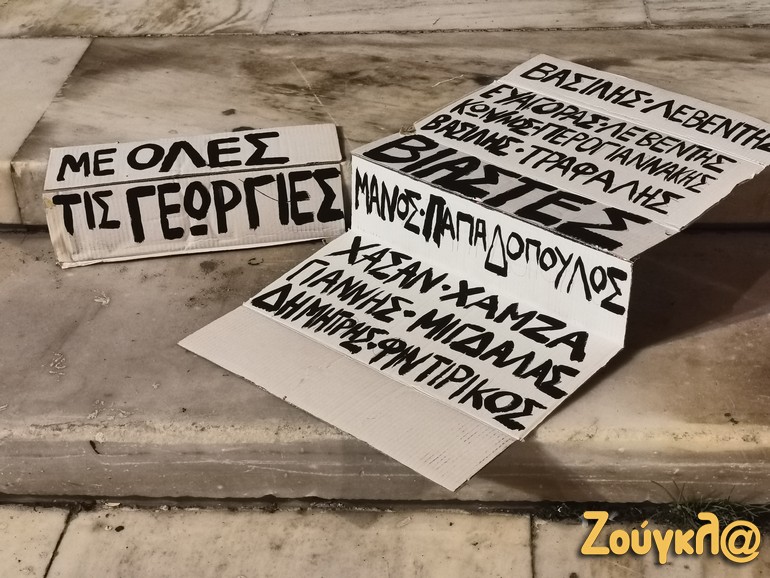 ΜΕ ΟΛΕΣ
ΤΙΣ ΓΕΩΡΓΙΕΣ
ΒΑΣΙΛΗΣ·ΛΕΒΕΝΤΗΣ
ΕΥΑΓΟΡΑΣ·ΛΕΒΕΝΤΗΣ
ΚΩΝ/ΝΟΣ·ΠΕΡΟΓΙΑΝΝΑΚΗΣ
ΒΑΣΙΛΗΣ·ΤΡΑΦΑΛΗΣ
ΒΙΑΣΤΕΣ
ΜΑΝΟΣ·ΠΑΠΑΔΟΠΟΥΛΟΣ
ΧΑΣΑΝ·ΧΑΜΖΑ
ΓΙΑΝΝΗΣ·ΜΙΓΔΑΛΑΣ
ΔΗΜΗΤΡΗΣ·ΦΙΝΤΙΡΙΚΟΣ
Ζούγκλ@